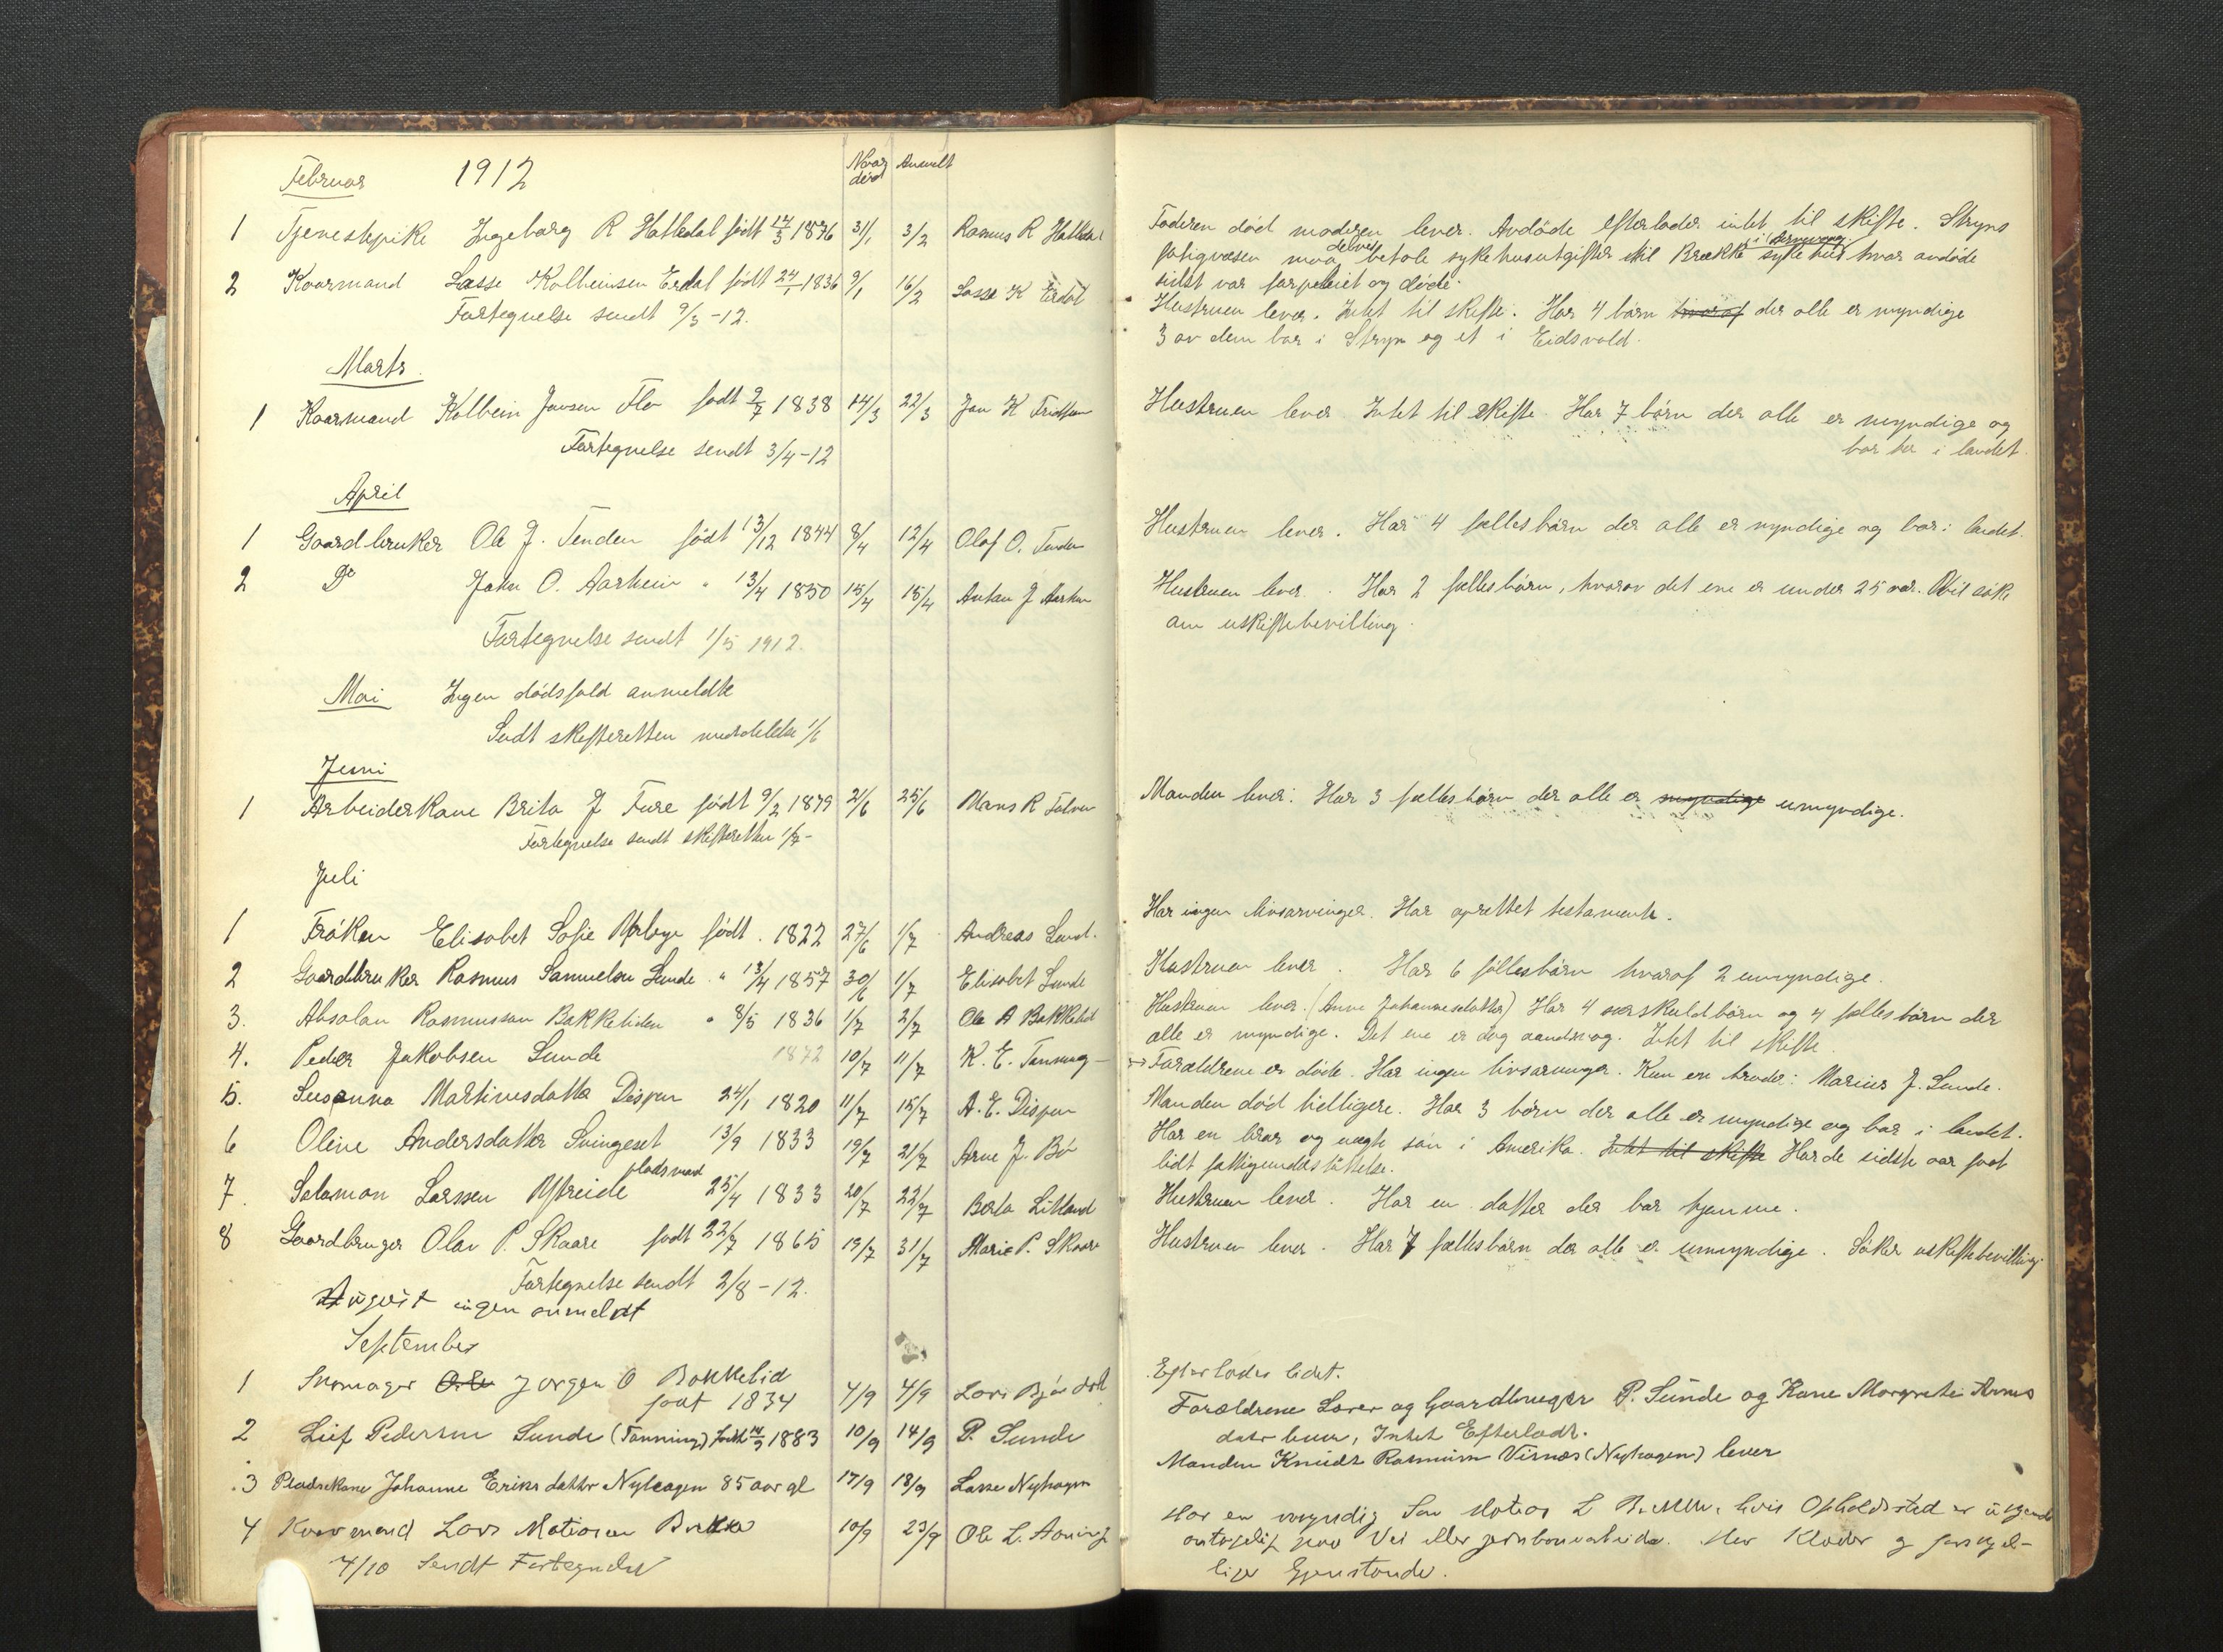 Februar 1912 Naar död Anmeldt
1 Tjenestepike Ingeborg R Hatledal födt 14/3 1876 31/1 3/2 Rasmus R Hatledal
2 Kaarmand Lasse Kolbeinsen Erdal födt 24/1 1836 9/1 16/2 Lasse K Erdal
Fortegnelse sendt 9/3-12.
Marts.
1 Kaarmand Kolbein Jonsen Flo födt 9/7 1838 14/3 22/3 Jon K
Fortegnelse sendt 3/4-12
April
1 Gaardbruker Ole J. Tenden födt 13/12 1844 8/4 12/4 Olaf O. Tenden
2 Do John O. Aarheim " 13/4 1850 15/4 15/4 Anton J Aarheim
Fortegnelse sendt 1/5 1912.
Mai Ingen dödsfald anmeldte
Sendt skifteretten meddelelse 1/6
Juni
1 Arbeiderkone Brita J Fure födt 9/2 1879 2/6 25/6 Mons R
Fortegnelse sendt skifteretten 1/7-
Juli
1 Fröken Elisabet Sofie Myrbye födt . 1822 27/6 1/7 Andreas Lund.
2 Gaardbruker Rasmus Samuelsen Sunde . " 13/4 1857 30/6 1/7 Elisabet Sunde
3. Absolon Rasmusson Bakkeliden " 8/5 1836 1/7 2/7 Ole A Bakkelid
4. Peder Jakobsen Sunde 1872 10/7 11/7 K. E. Tonning
5. Susanna Martinusdatter Dispen 24/1 1820 11/7 15/7 A. E. Dispen
6 Oline Andersdatter Svingeset 13/9 1833 19/7 21/7 Arne J. Bö
7. Salamon Larssen Ystreide pladsmand 25/4 1833 20/7 22/7 Berta
8 Gaardbruger Olav P. Skaare födt 22/7 1865 19/7 31/7 Marie P. Skaare
Fortegnelse sendt 2/8-12.
August ingen anmeldt
September
1 Skomager Ole Jørgen O Bakkelid
født 1834 4/9 4/9 Lars
2 Leif Pedersen Sunde (Tonning) født 14/9 1883 10/9 14/9 P. Sunde
3 Pladsekone Johanne Eriksdatter Nyhagen 85 aar gl 17/9 18/9 Lasse Nyhagen
4 Kaarmand Lars Matiasen 10/9 23/9 Ole L.
4/10 Sendt Fortegnelse
Faderen død moderen lever. Avdöde efterlader intet til skifte. Stryns
fatigvæsen maa delvis betale sykehusutgifter til Brække sykehus hvor avdöde
sidst var forpleiet og döde.
Hustruen lever. Intet til skifte. Har 4 börn hvoraf der alle er myndige
3 av dem bor i Stryn og et i Eidsvold.
Hustruen lever Intet til skifte Har 7 börn der alle er myndige og
bor her i landet.
Hustruen lever. Har 4 fællesbörn der alle er myndige og bor i landet.
Hustruen lever. Har 2 fællesbörn, hvorav det ene er under 25 aar. Vil söke
om uskiftebevilling.
Manden lever. Har 3 fællesbörn der alle er myndige umyndige.
Har ingen livsarvinger. Har oprettet testamente.
Hustruen lever. Har 6 fællesbörn hvoraf 2 umyndige.
Hustruen lever. (Anne Johannesdatter) Har 4 særskuldbörn og 4 fællesbörn der
alle er myndige. Det ene er dog aandssvag. Intet til skifte.
Forældrene er döde. Har ingen livsarvinger. Kun en broder: Marius J. Sunde.
Manden död tidligere. Har 3 börn der alle er myndige og bor i landet.
Har en bror og uægte sön i Amerika. Intet til skifte Har de sidste aar faat
lidt fattigunderstöttelse.
Hustruen lever. Har en datter der bor hjemme.
Hustruen lever. Har 7 fællesbörn der alle er umyndige. Söker uskiftebevilling.
Efterlader lidet.
Forældrene Lærer og Gaardbruger P. Sunde og Kone Margrete
Intet Efterladt.
Manden Knudt Rasmusen Visnæs (Nyhagen) lever
Har en myndig Søn Matias L hvis Opholdssted er
antagelig paa Vei eller jernbanearbeide. Klæder og
Gjenstande.